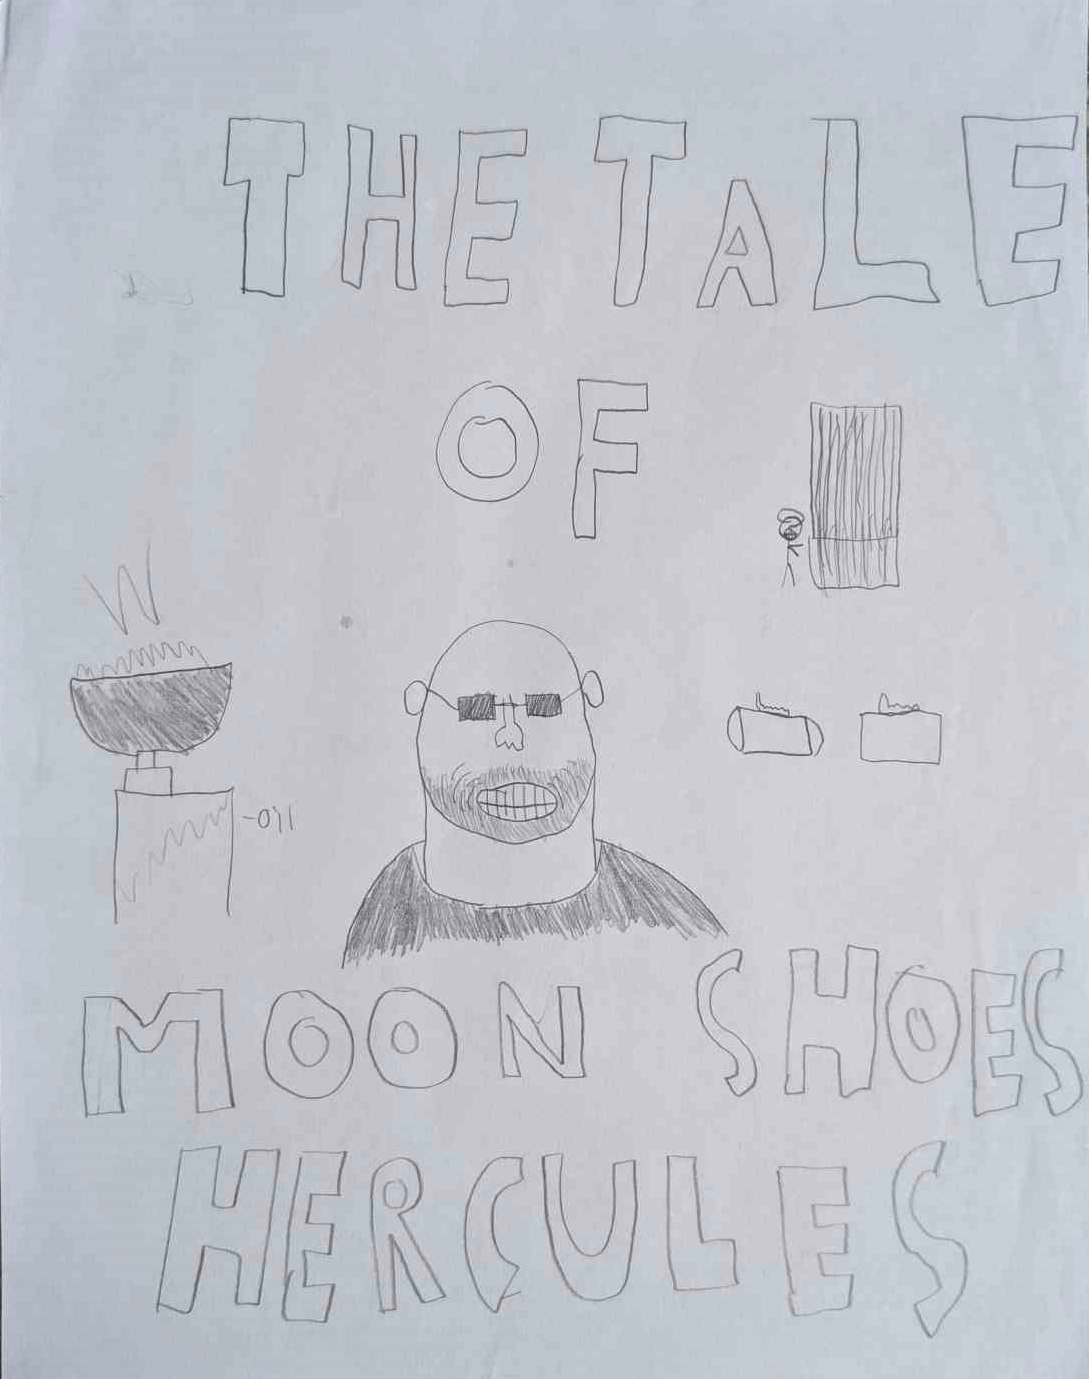 THE TALE
OF
MOON SHOES
HERCULES